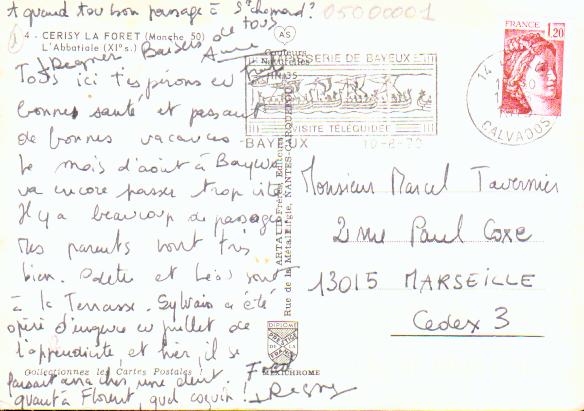 A quand ton bon passage à St chamond?
05000001
4 - CERISY LA FORET (Manche 50)
L'Abbatiale (XIe s.)
Baisers de tous
Anne
AS
Couleurs Naturelles
FRANCE
1,20
SERIE DE BAYEUX
VISITE TÉLÉGUIDÉE
BAYEUX
10-8-79
14
CALVADOS
Tous ici t'espérons en
bonne santé et passant
de bonnes vacances.
Le mois d'août à Bayeux
va encore passer trop vite
Il y a beaucoup de passage
Mes parents vont très
bien. Odette et Léas sont
à la Terrasse. Sylvain a été
opéré d'urgence en juillet de
l'appendicite, et hier, il se
faisait arracher une dent
quant à Florent, quel coquin!
ARTAUD Frères Editeurs
Rue de la Métallurgie, NANTES-CARQUEFOU
DIPLOME
PRESTIGE DE LA FRANCE
MEXICHROME
Collectionnez les Cartes Postales !
Monsieur Marcel Tavernier
2 rue Paul Coxe
13015 MARSEILLE
Cedex 3